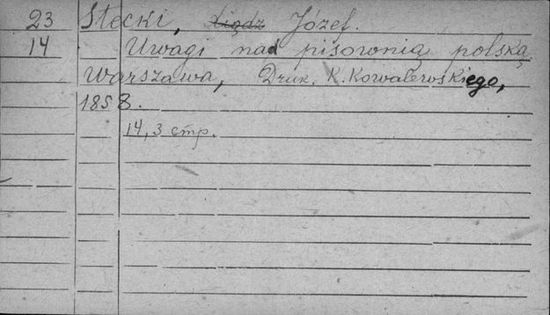 23 Stecki, xiądz Józef.
14 Uwagi nad pisownią polską
Warszawa, Druk. K. Kowalewskiego,
1858.
14, 3 стр.